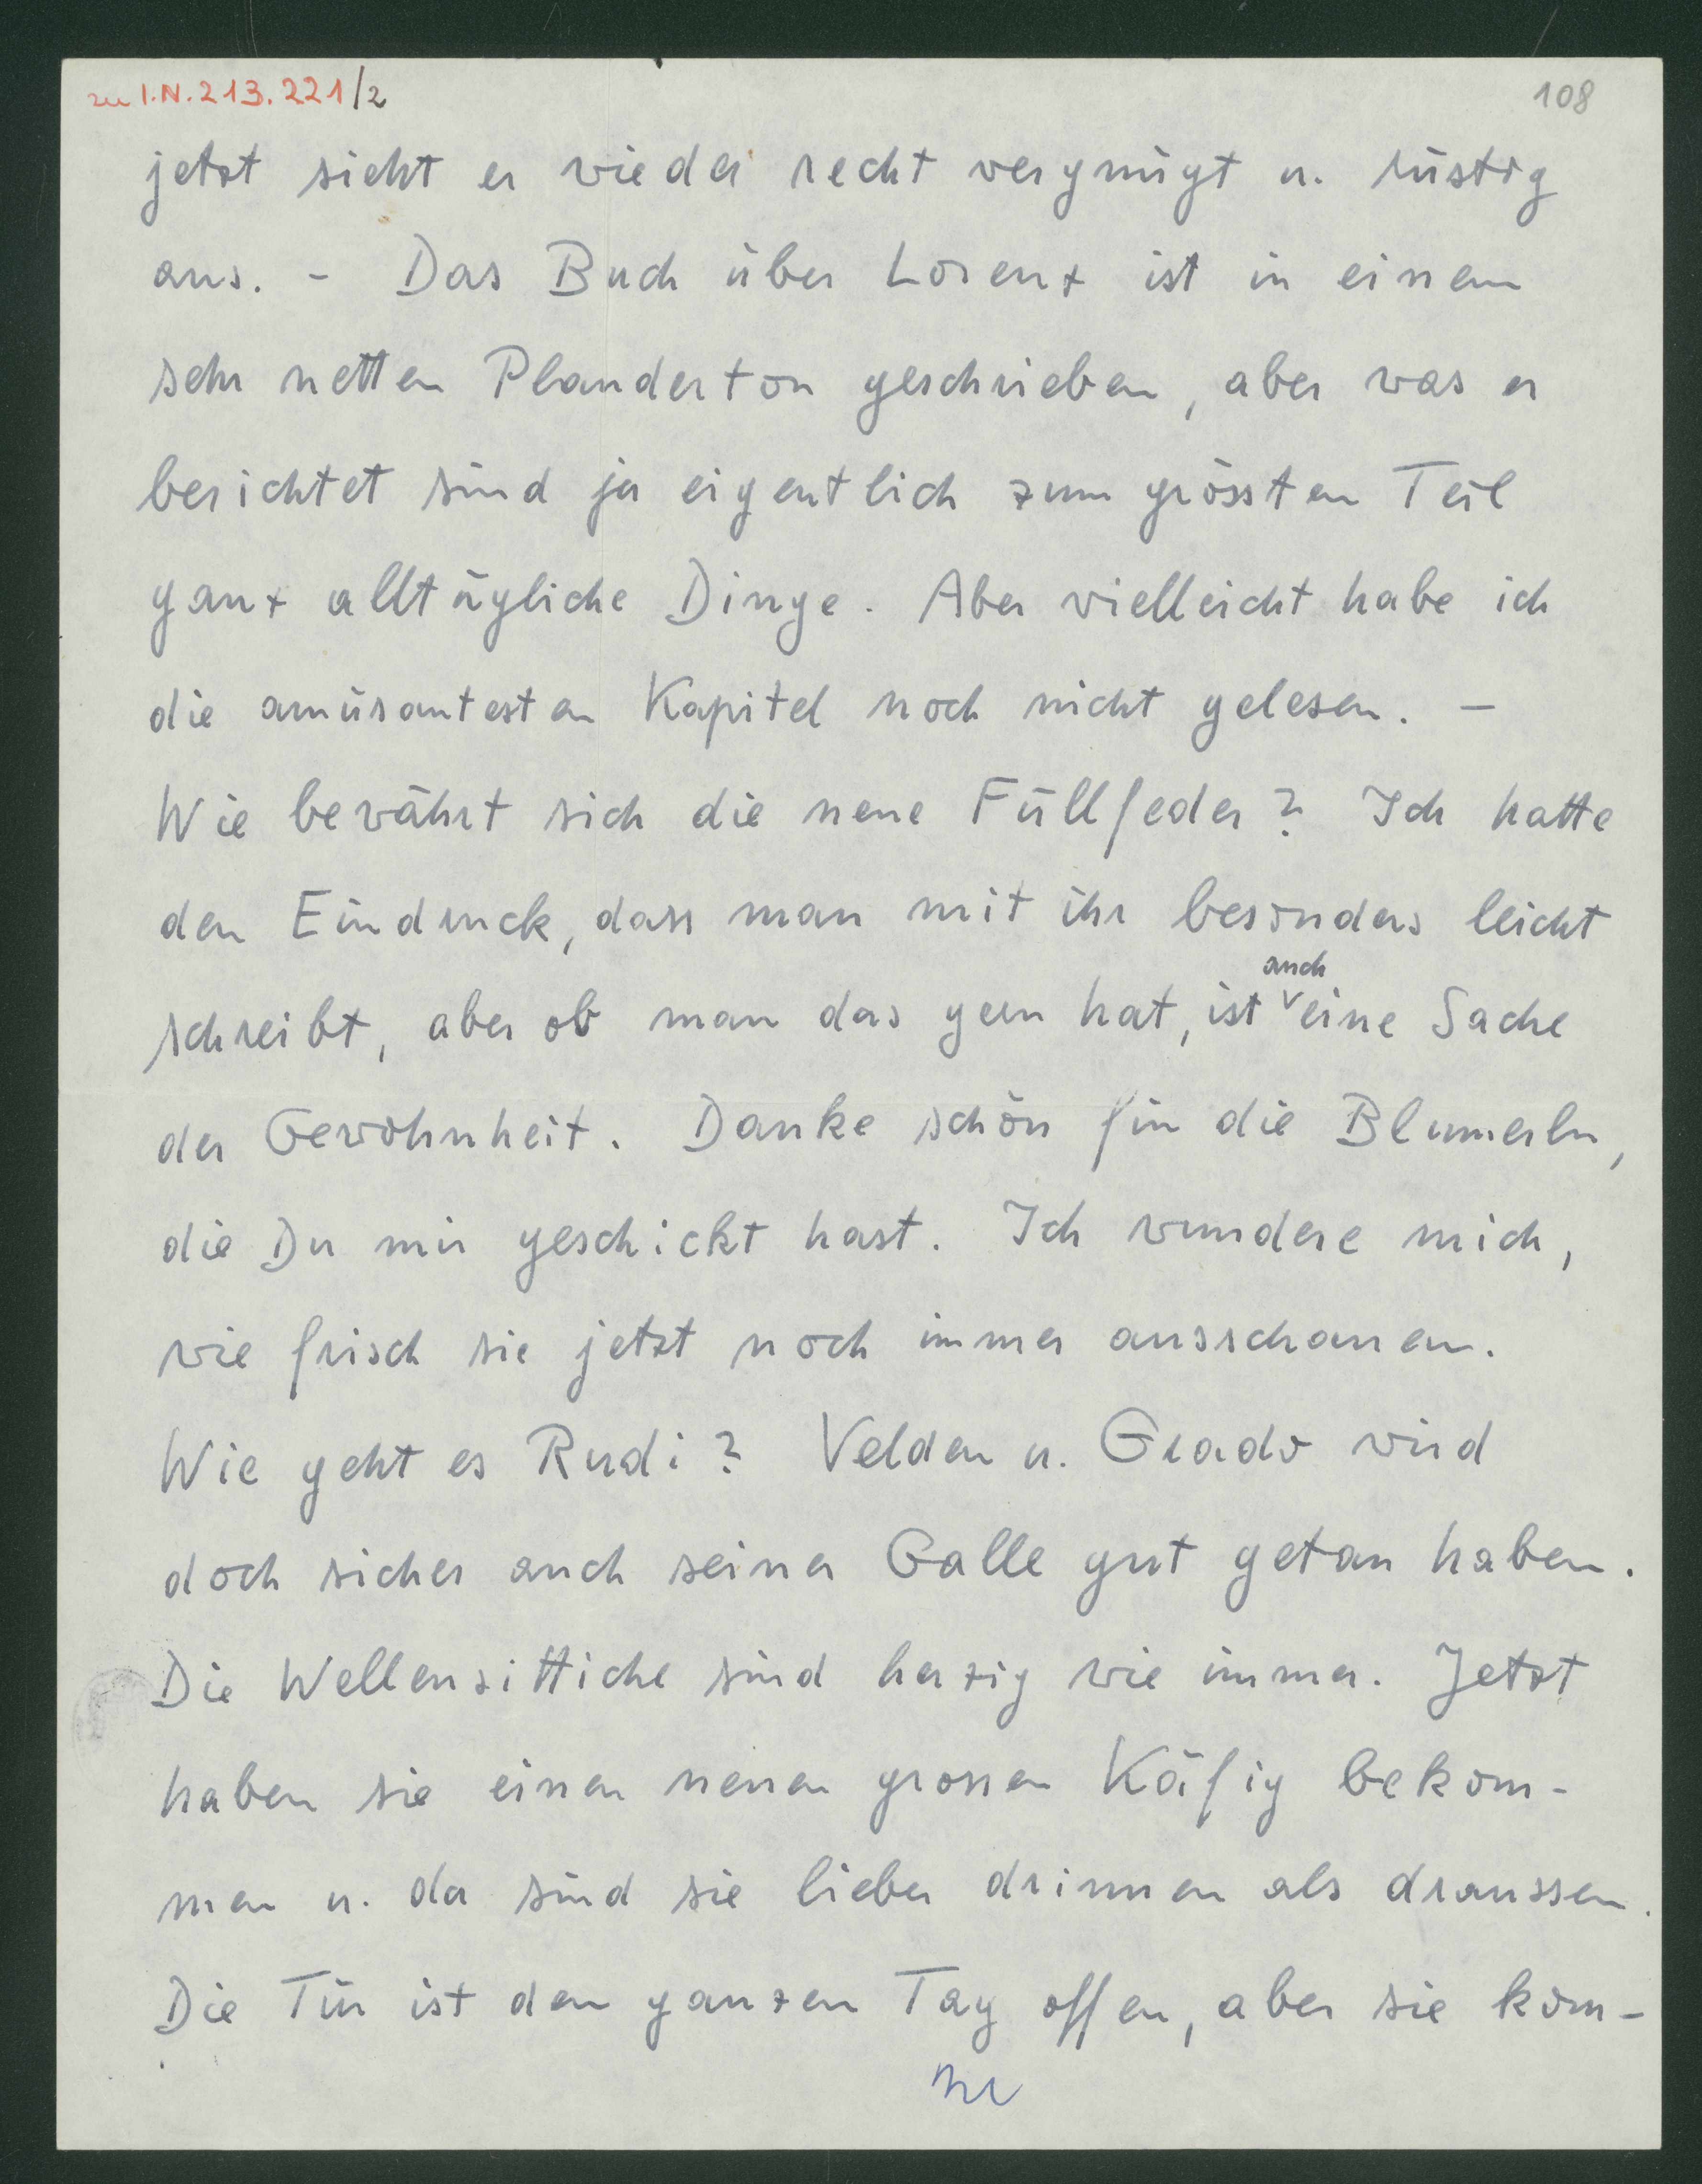 zu I.N. 213.221/2
108
jetzt sieht er wieder recht vergnügt u. rüstig
aus. - Das Buch über Lorenz ist in einem
sehr netten Plauderton geschrieben, aber was er
berichtet sind ja eigentlich zum grössten Teil
ganz alltägliche Dinge. Aber vielleicht habe ich
die amüsantesten Kapitel noch nicht gelesen. -
Wie bewährt sich die neue Füllfeder? Ich hatte
den Eindruck, dass man mit ihr besonders leicht
auch
schreibt, aber ob man das gern hat, ist eine Sache
der Gewohnheit. Danke schön für die Blumerln,
die Du mir geschickt hast. Ich wundere mich,
wie frisch sie jetzt noch immer ausschauen.
Wie geht es Rudi? Velden u. Grado wird
doch sicher auch seiner Galle gut getan haben.
Die Wellensittiche sind herzig wie immer. Jetzt
haben sie einen neuen grossen Käfig bekom-
men u. da sind sie lieber drinnen als draussen.
Die Tür ist den ganzen Tag offen, aber sie kom-